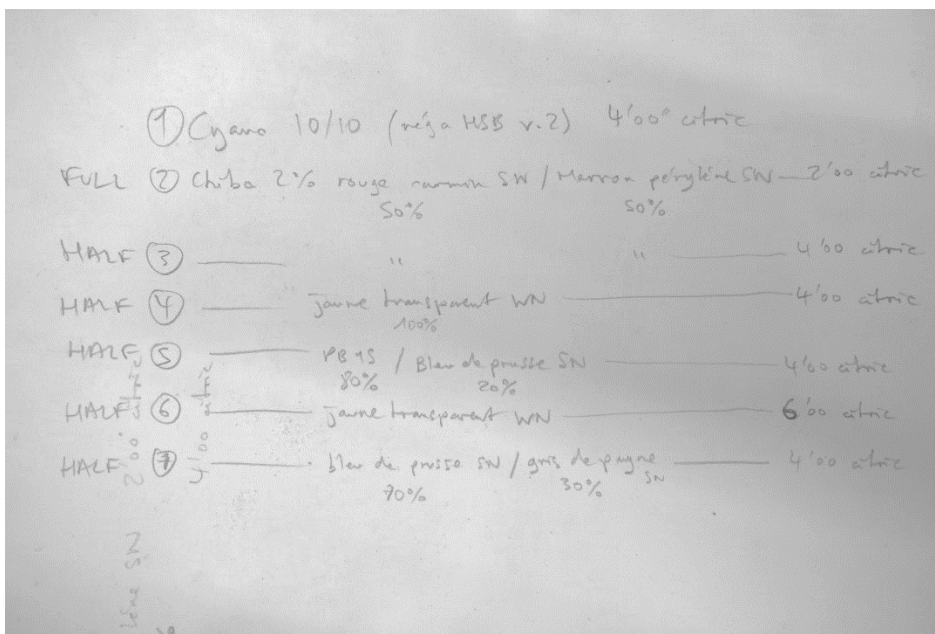 ① Cyano 10/10 (néga HSB v.2) 4'00" citric
FULL ② Chiba 2% rouge carmin SN / Marron pérylène SN — 2'00 citric
50% 50%
HALF ③ — " " — 4'00 citric
HALF ④ — jaune transparent WN — 4'00 citric
100%
HALF ⑤ — PB15 / Bleu de prusse SN — 4'00 citric
80% 20%
HALF ⑥ — jaune transparent WN — 6'00 citric
HALF ⑦ — bleu de prusse SN / gris de payne SN — 4'00 citric
70% 30%
2'00 citric
4'00 citric
lène SN